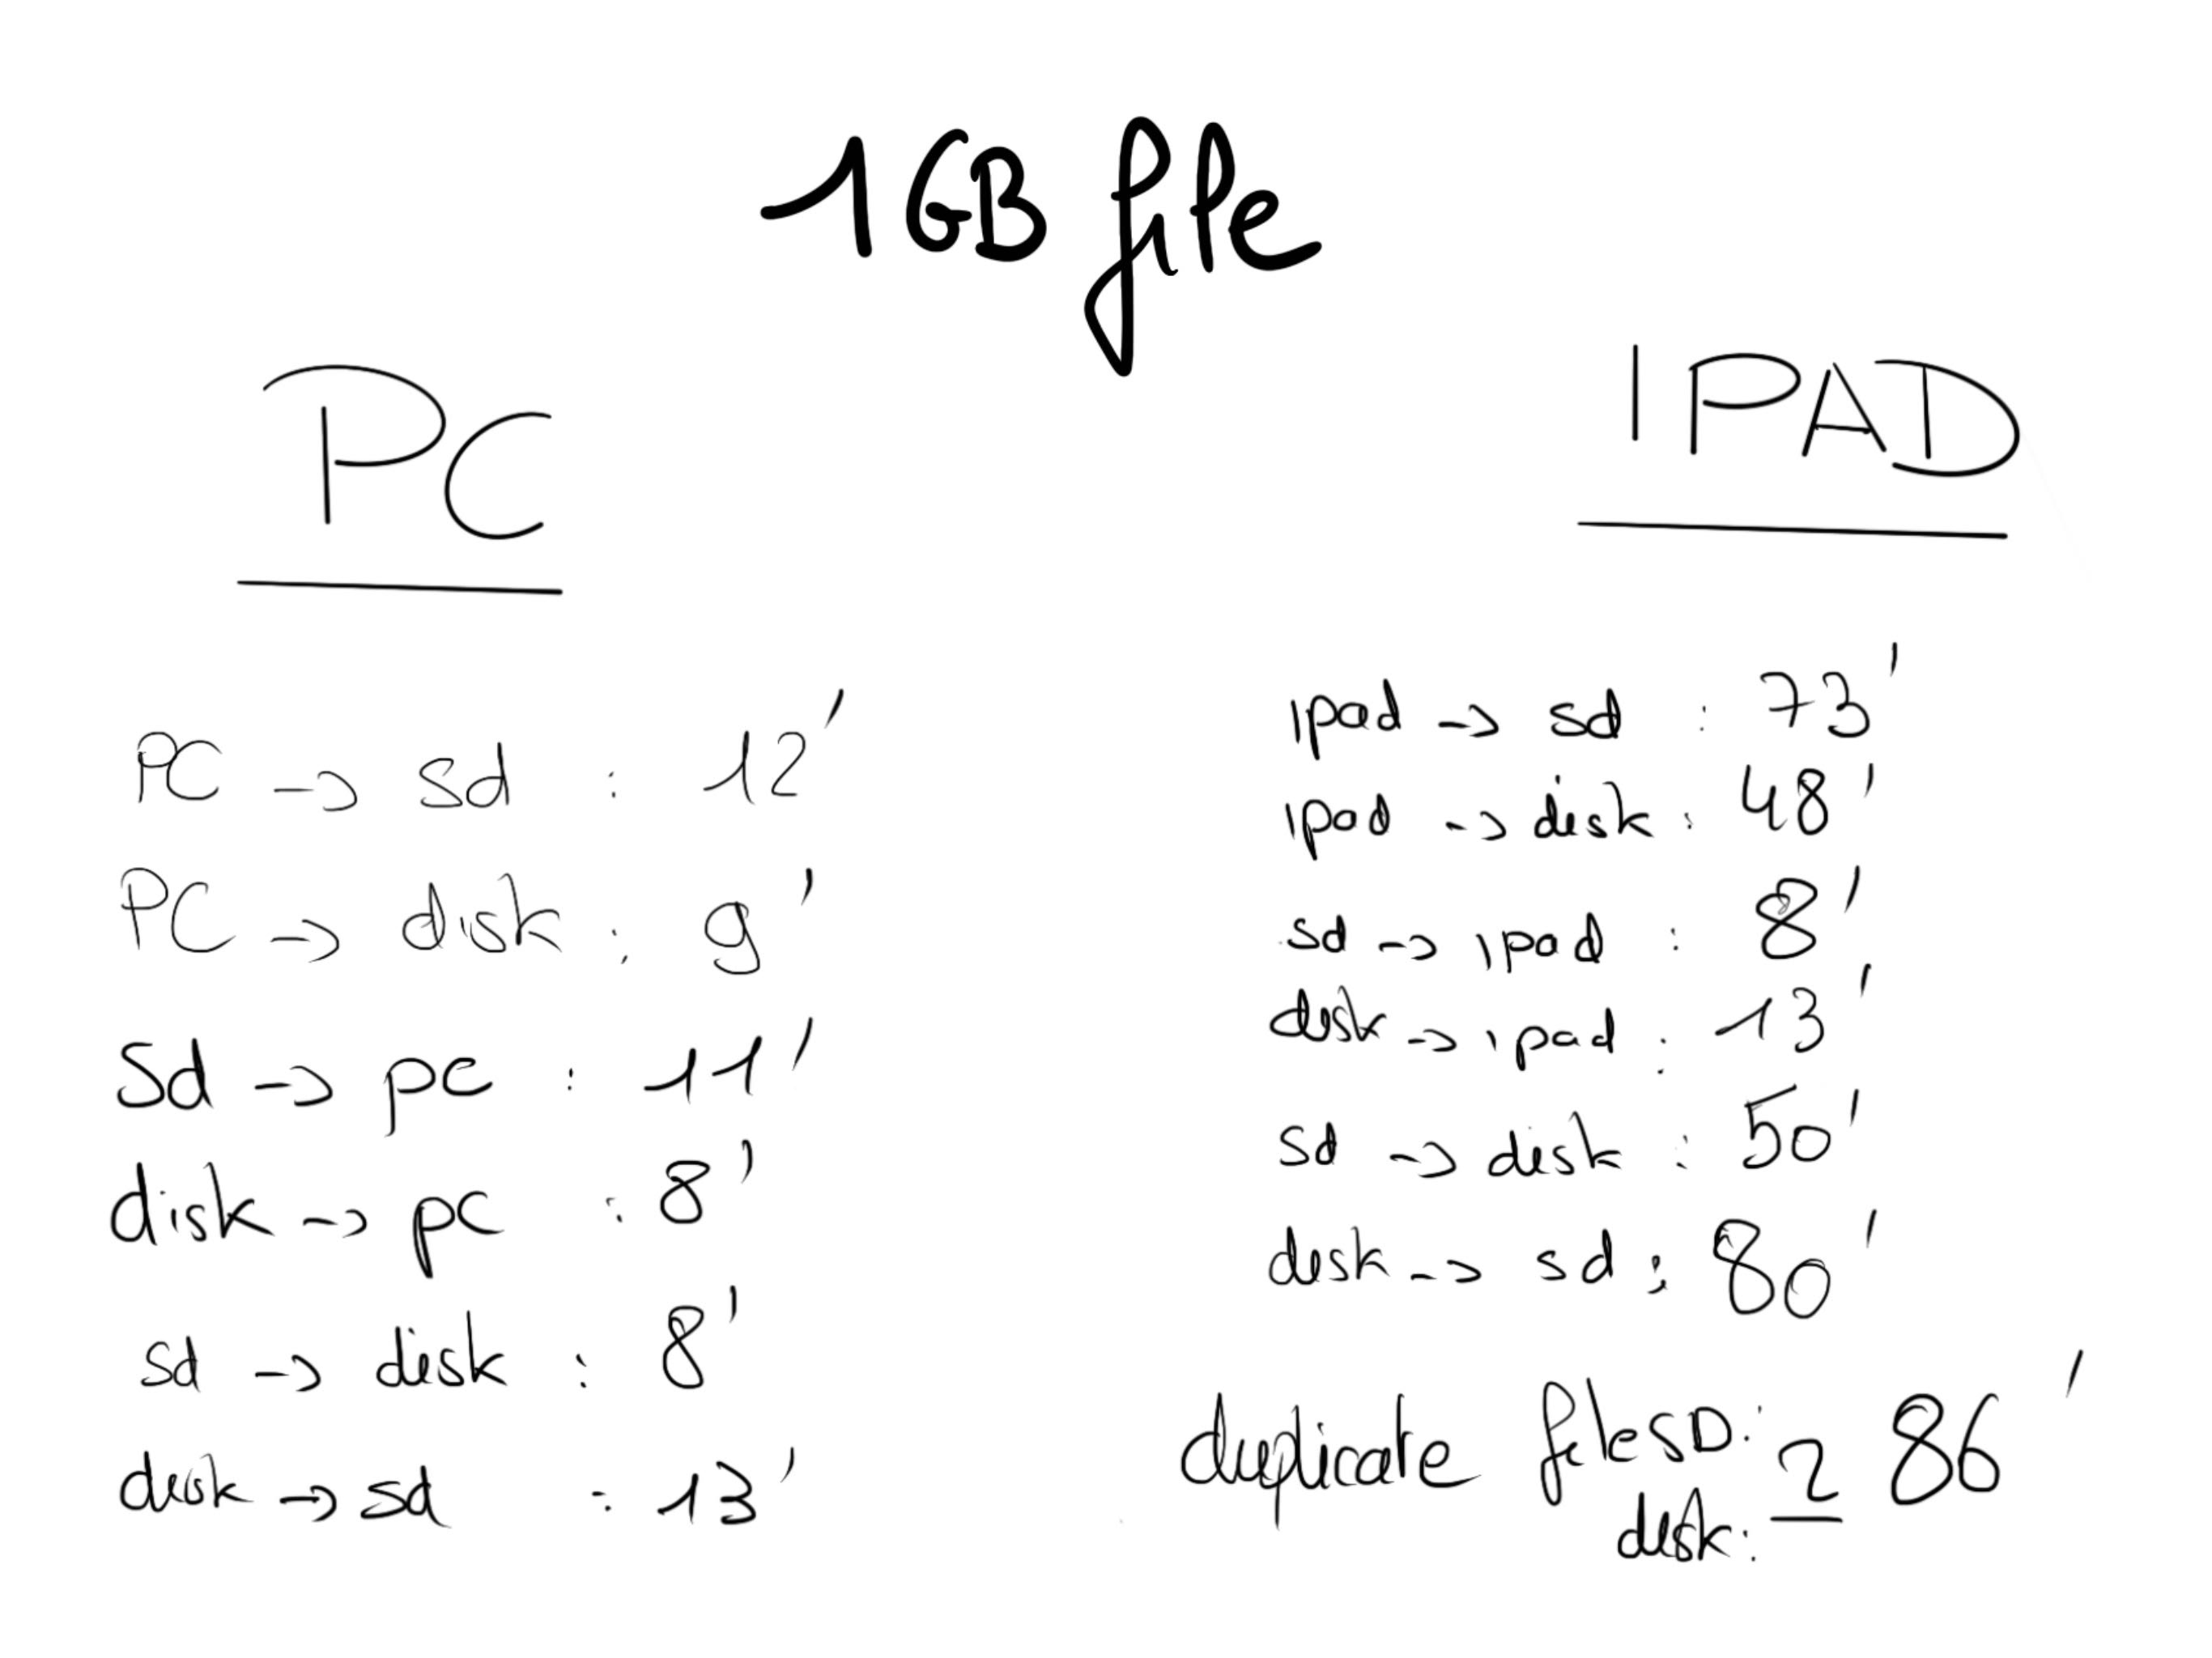 1GB file
PC
PC -> sd : 12'
PC -> disk : 9'
Sd -> pc : 11'
disk -> pc : 8'
sd -> disk : 8'
disk -> sd : 13'
IPAD
ipad -> sd : 73'
ipad -> disk : 48'
sd -> ipad : 8'
disk -> ipad : 13'
sd -> disk : 50'
disk -> sd : 80'
duplicate file SD: 2 86'
disk: